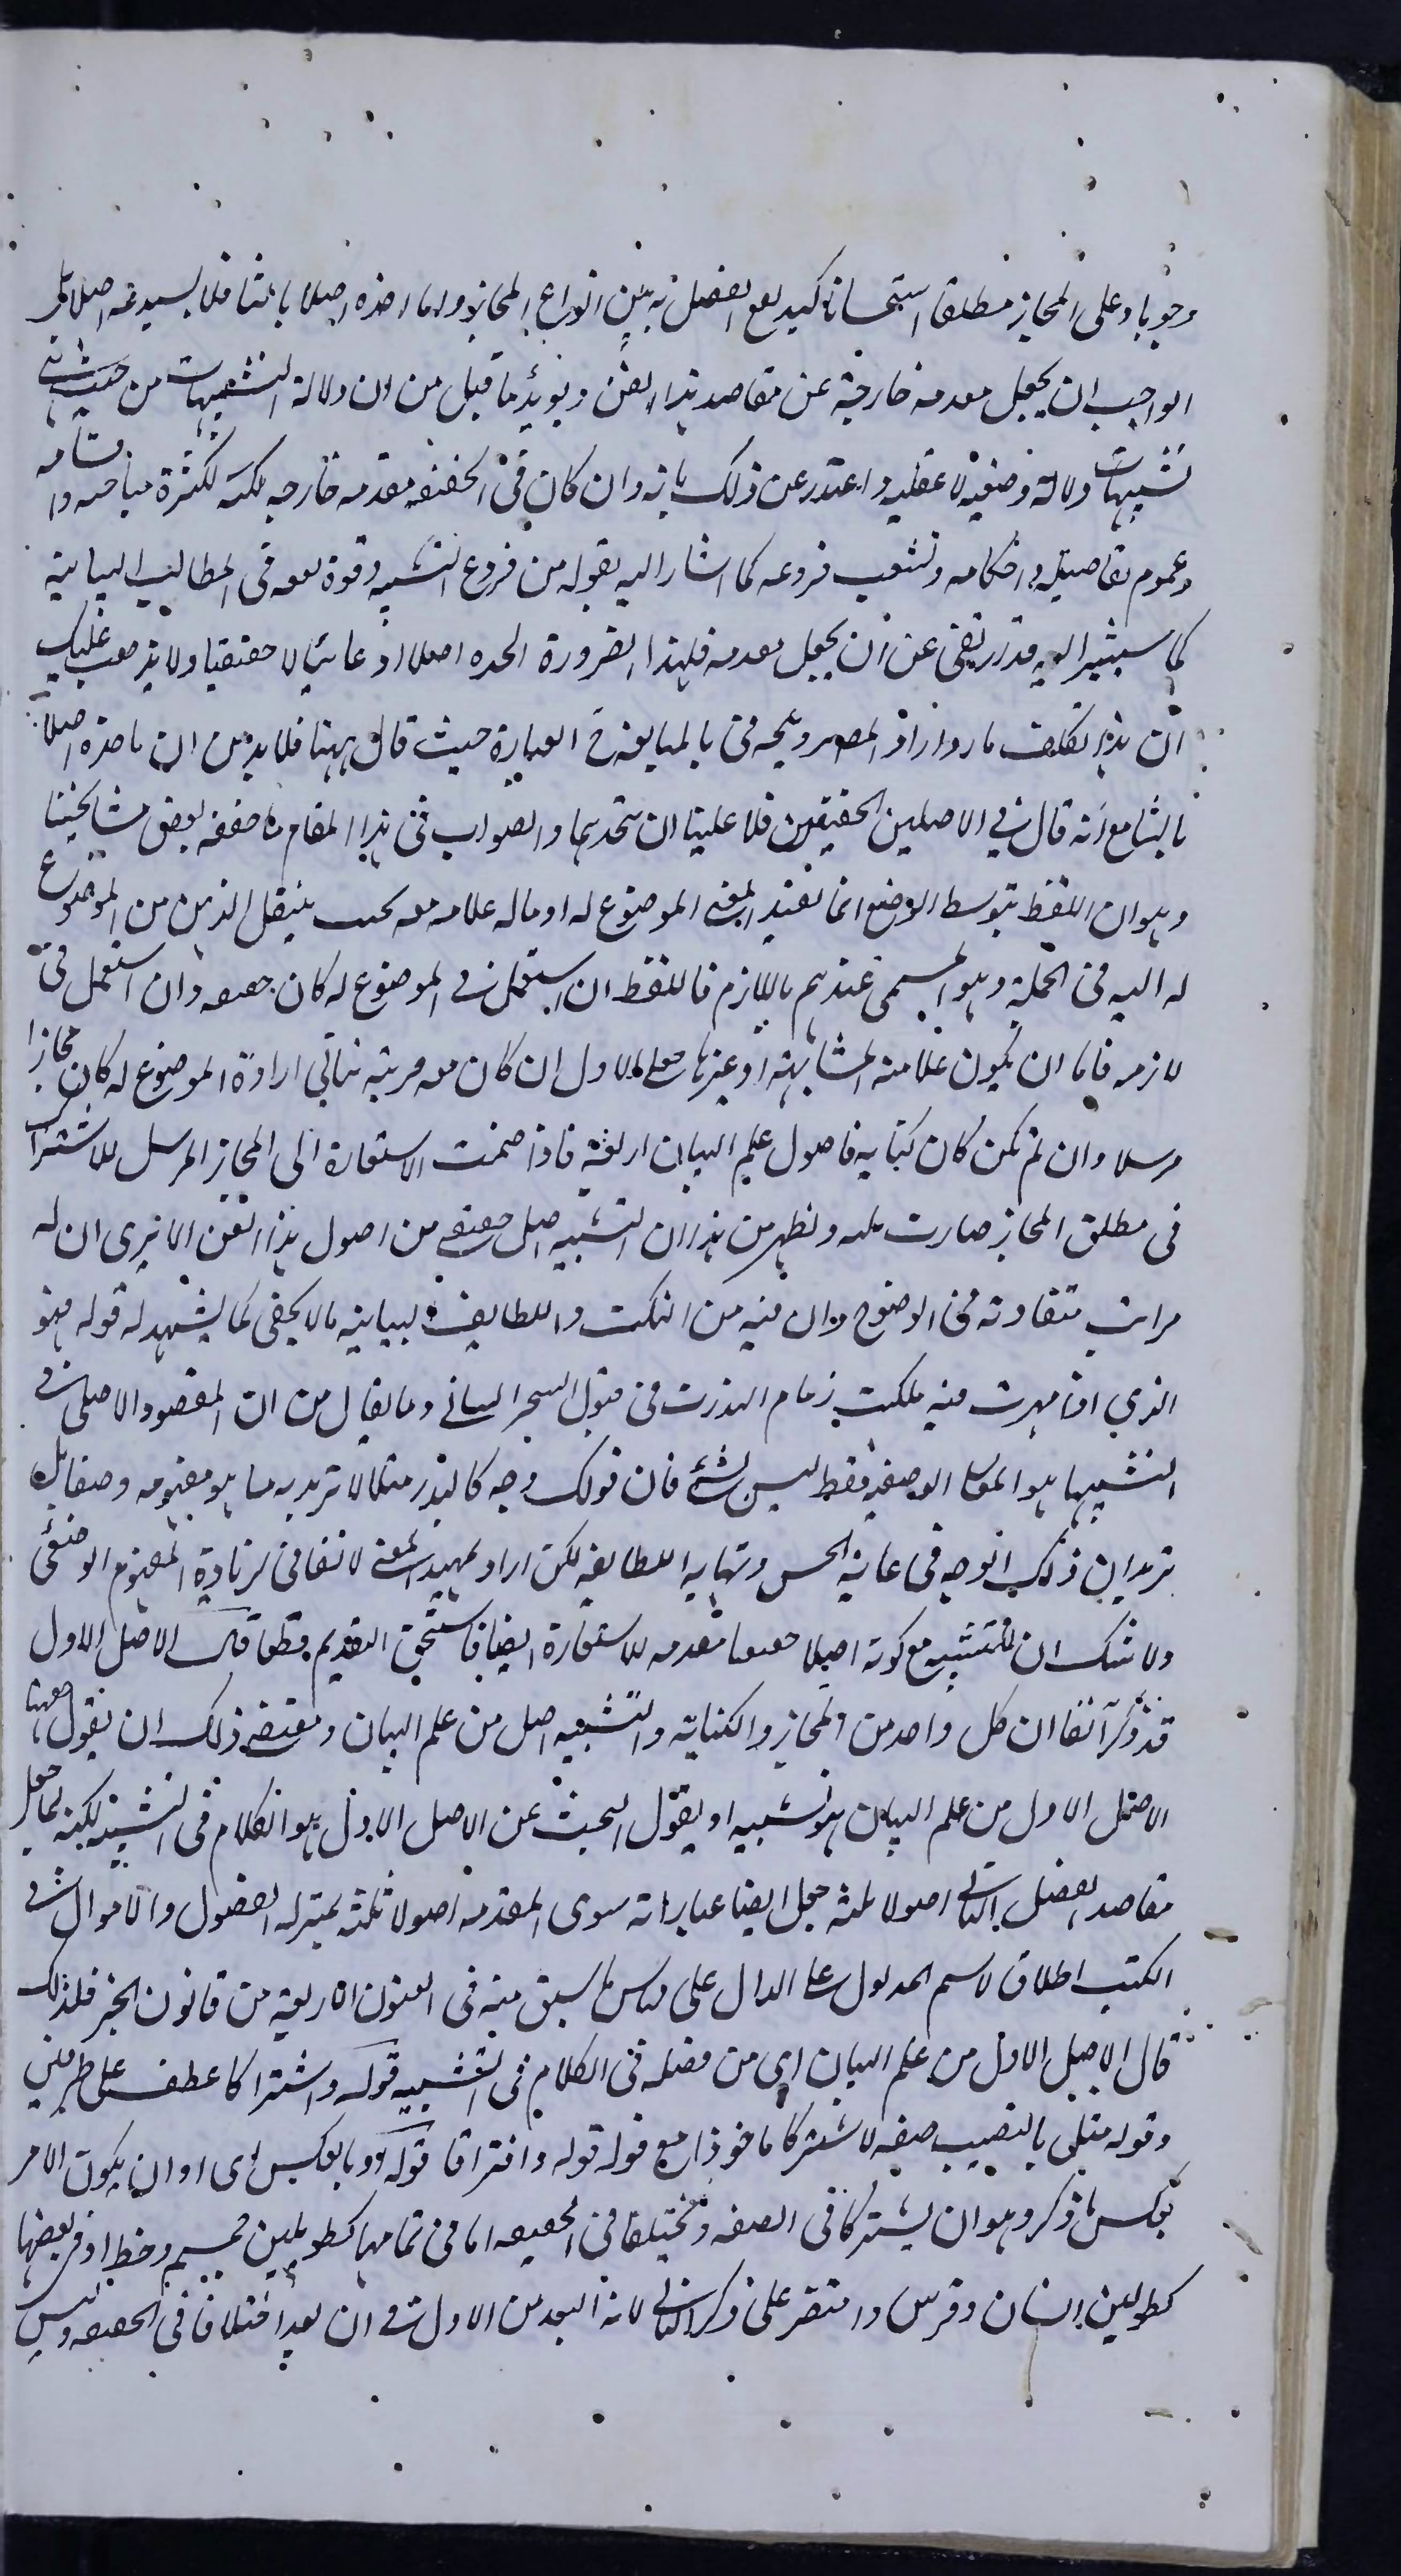 وجوبا وعلى المجاز مطلقا استحسانا كيد يقع الفصل به بين انواع المجاز واما اخذه اصلا بالثنا فلا يستدعيه اصلا بل
الواجب ان يجعل مقدمة خارجة عن مقاصد هذا الفن ويؤيد ما قيل من ان دلالة التشبيهات من حيث انها
تشبيهات دلالة وضعية لا عقلية واعتذر عن ذلك بانه وان كان في الحقيقة مقدمة خارجة لكنه لكثرة مباحثه واقسامه
وعموم تفاصيله واحكامه وتشعب فروعه كما اشار اليه بقوله من فروع التشبيه وقوة نفعه في المطالب البيانية
كما سيشير اليه قد ارتقى عن ان يجعل مقدمة فلهذا الضرورة اتخذه اصلا ادعائيا لا حقيقيا ولا يذهب عليك
ان هذا تكلف بارد اراد المصـ ترويجه في بالمبالغة في العبارة حيث قال ههنا فلا بد من ان ناخذه اصلا
ثالثا مع انه قال في الاصلين الحقيقين فلا علينا ان نتخذهما والصواب في هذا المقام ما حققه بعض مشايخنا
وهو ان اللفظ بتوسط الوضع انما يفيد المعنى الموضوع له او ماله علاقة معه بحيث ينتقل الذهن من الموضوع
له اليه في الجملة وهو المسمى عندهم باللازم فاللفظ ان استعمل في الموضوع له كان حقيقة وان استعمل في
لازمه فاما ان يكون علاقته المشابهة او غيرها فعلى الاول ان كان معه قرينة تنافي ارادة الموضوع له كان مجازا
مرسلا وان لم تكن كان كناية فاصول علم البيان اربعة فاذا ضمت الاستعارة الى المجاز المرسل للاشتراك
في مطلق المجاز صارت ثلثة ونظهر من هذا ان التشبيه اصل حقيقي من اصول هذا الفن الا يرى ان له
مراتب متفاوتة في الوضوح وان فيه من النكت واللطايف البيانية ما لا يخفى كما يشهد له قوله فهو
الذي اذا مهرت فيه ملكت زمام التدرب في فنون السحر البياني وما يقال من ان المقصود الاصلي في
التشبيهات هو المعاني الوضعية فقط ليس بشئ فان قولك وجه كالبدر مثلا لا تريد به ما هو مفهومه وضعا بل
تريد ان ذلك الوجه في غاية الحسن ونهاية اللطافة لكن ارادة هذا المعنى لا تنافي ارادة المفهوم الوضعي
ولا شك ان التشبيه مع كونه اصلا حقيقيا مقدمة للاستعارة ايضا فاستحق التقديم قطعا قوله الاصل الاول
قد ذكر آنفا ان كل واحد من المجاز والكناية والتشبيه اصل من علم البيان ومقتضى ذلك ان يقول ههنا
الاصل الاول من علم البيان هو تشبيه او يقول البحث عن الاصل الاول هو الكلام في التشبيه لكنه لما جعل
مقاصد الفصل الثاني اصولا ثلثة جعل ايضا عباراته سوى المقدمة اصولا ثلثة بمنزلة الفصول والابواب في
الكتب اطلاق لاسم المدلول على الدال على قياس ما سبق منه في الفنون الاربعة من قانون الخبر فلذلك
قال الاصل الاول من علم البيان اي من فصله في الكلام في التشبيه قوله واشتراكا عطف على طرفين
وقوله مثلي بالنصب صفة لاشتراكا ماخوذا مع قوله قوله وافتراقا قوله او بالعكس اى او ان يكون الامر
بعكس ما ذكر وهو ان يشتركا في الصفة ويختلفا في الحقيقة اما في تمامها كطويلين جسم وخط او في بعضها
كطويلين انسان وفرس واقتصر على ذكر الثاني لانه ابعد من الاول في ان يعد اختلافا في الحقيقة وليس